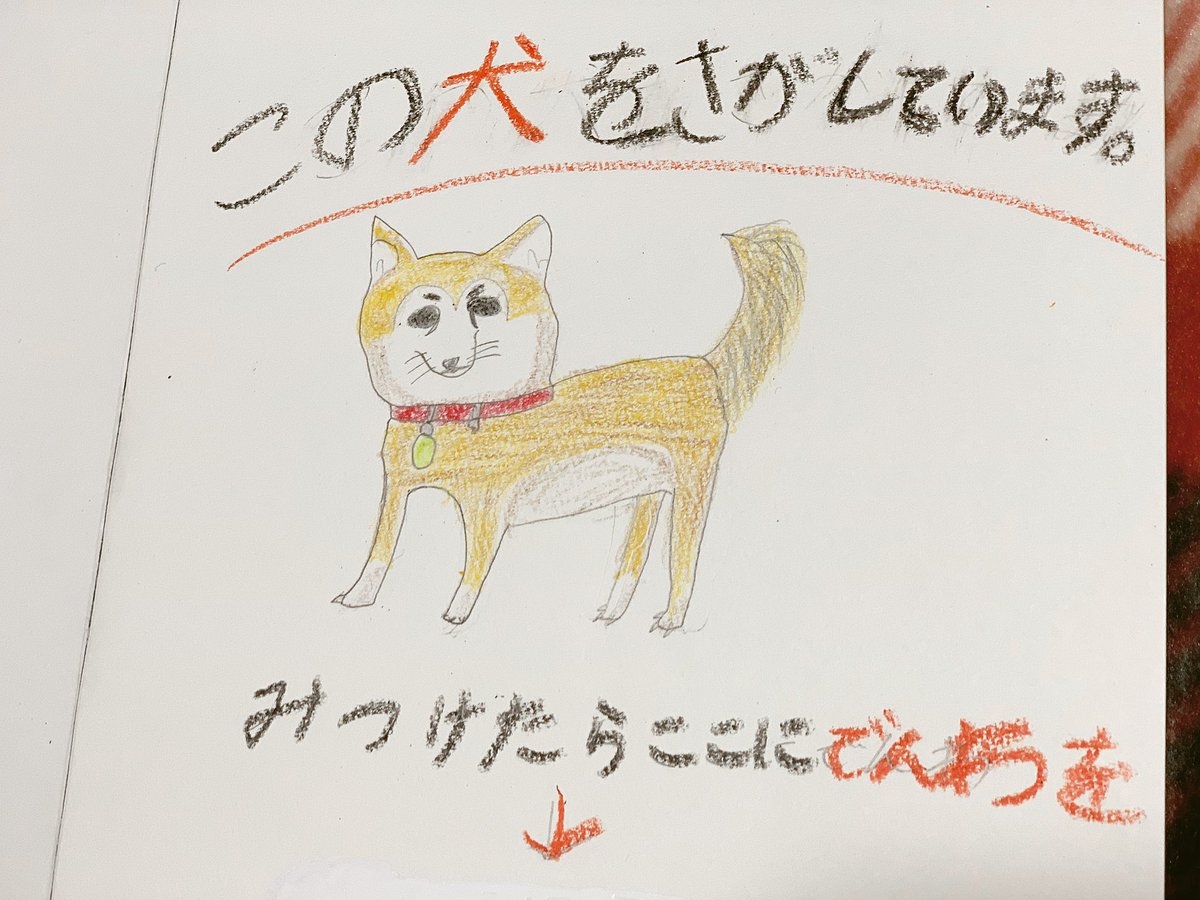 この犬をさがしています。
みつけたらここにでんわを